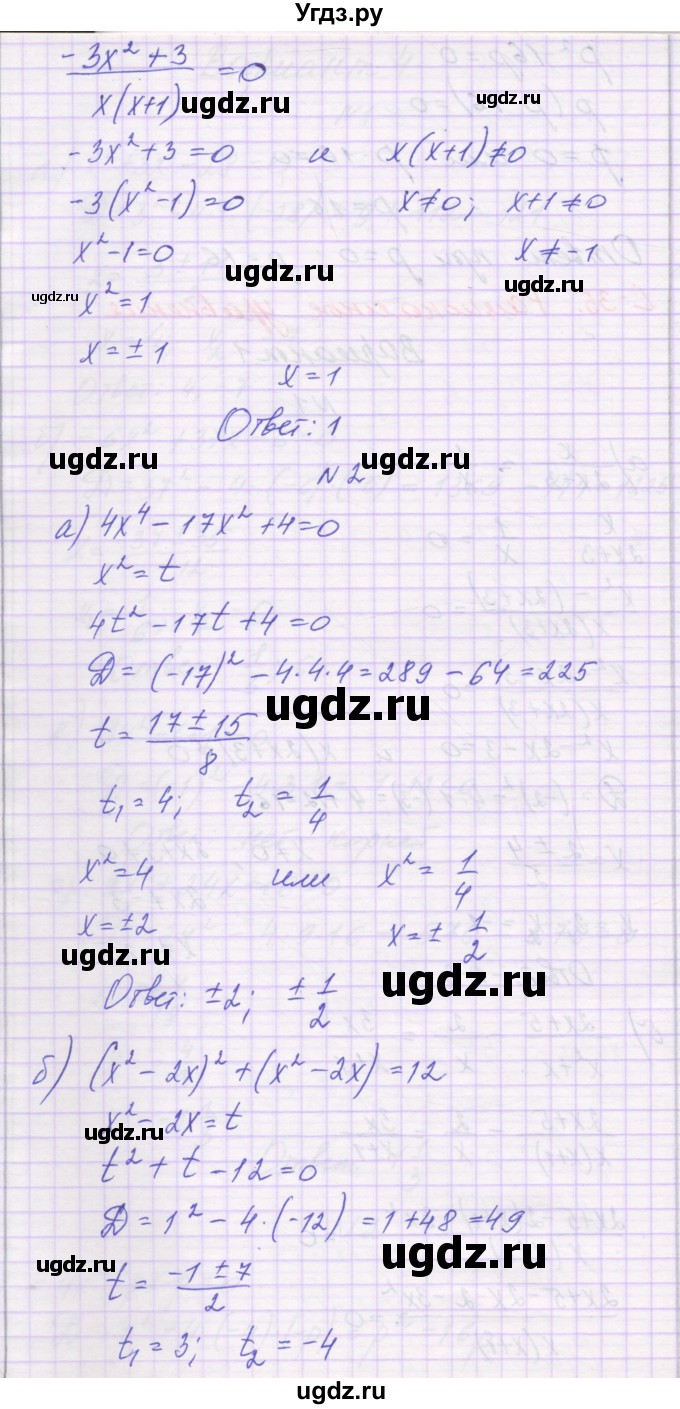 Угдз.ру
(-3x² + 3)/(x(x+1)) = 0
ugdz.ru ugdz.ru
-3x² + 3 = 0 и x(x+1) ≠ 0
-3(x² - 1) = 0 x ≠ 0; x+1 ≠ 0
ugdz.ru ugdz.ru
x² - 1 = 0 x ≠ -1
ugdz.ru ugdz.ru
x² = 1
x = ± 1
x = 1
Ответ: 1
ugdz.ru N 2 ugdz.ru
а) 4x⁴ - 17x² + 4 = 0
x² = t
4t² - 17t + 4 = 0
D = (-17)² - 4·4·4 = 289 - 64 = 225
ugdz.ru
t = (17 ± 15)/8
t₁ = 4; t₂ = 1/4
x² = 4 или x² = 1/4
x = ±2 x = ± 1/2
ugdz.ru ugdz.ru
Ответ: ±2; ± 1/2
б) (x² - 2x)² + (x² - 2x) = 12
x² - 2x = t
ugdz.ru
t² + t - 12 = 0
D = 1² - 4·(-12) = 1 + 48 = 49
ugdz.ru ugdz.ru
t = (-1 ± 7)/2
t₁ = 3; t₂ = -4
ugdz.ru